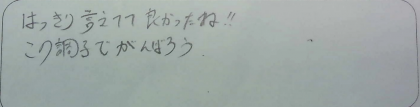 はっきり言えてて良かったね!!
この調子でがんばろう